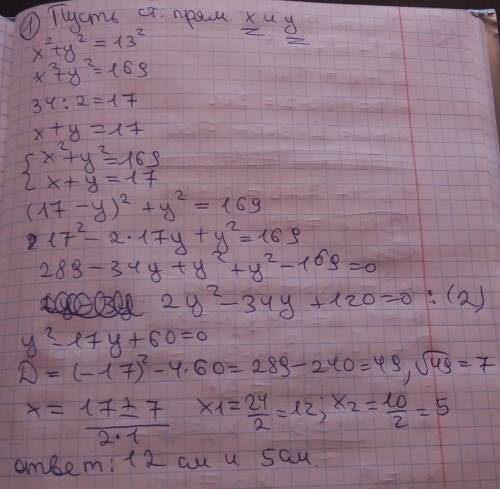 ① Пусть ст. прям x и y
x²+y²=13²
x²+y²=169
34:2=17
x+y=17
{ x²+y²=169
{ x+y=17
(17-y)²+y²=169
17²-2·17y+y²=169
289-34y+y²+y²-169=0
2y²-34y+120=0 :(2)
y²-17y+60=0
D=(-17)²-4·60=289-240=49, √49=7
x=17±7/2·1 x1=24/2=12; x2=10/2=5
ответ: 12 см и 5см.